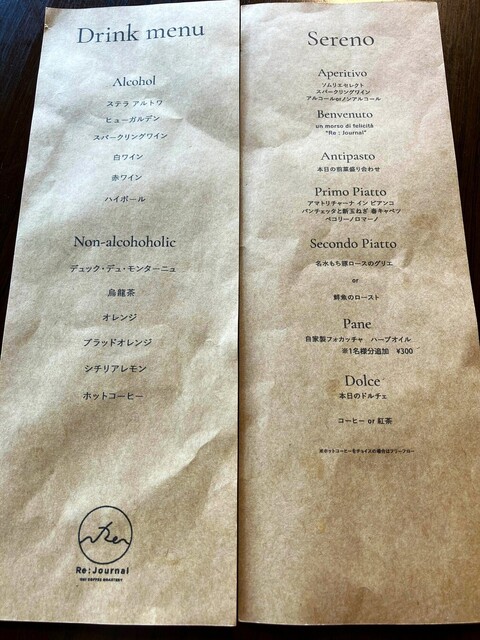 Drink menu
Alcohol
ステラ アルトワ
ヒューガルデン
スパークリングワイン
白ワイン
赤ワイン
ハイボール
Non-alcohoholic
デュック・デュ・モンターニュ
烏龍茶
オレンジ
ブラッドオレンジ
シチリアレモン
ホットコーヒー
Re
Re:Journal
Sereno
Aperitivo
ソムリエセレクト
スパークリングワイン
アルコールorノンアルコール
Benvenuto
un morso di felicità
"Re : Journal"
Antipasto
本日の前菜盛り合わせ
Primo Piatto
アマトリチャーナ イン ビアンコ
パンチェッタと新玉ねぎ 春キャベツ
ペコリーノロマーノ
Secondo Piatto
名水もち豚ロースのグリエ
or
鮮魚のロースト
Pane
自家製フォカッチャ ハーブオイル
※1名様分追加 ¥300
Dolce
本日のドルチェ
コーヒー or 紅茶
※ホットコーヒーをチョイスの場合はフリーフロー